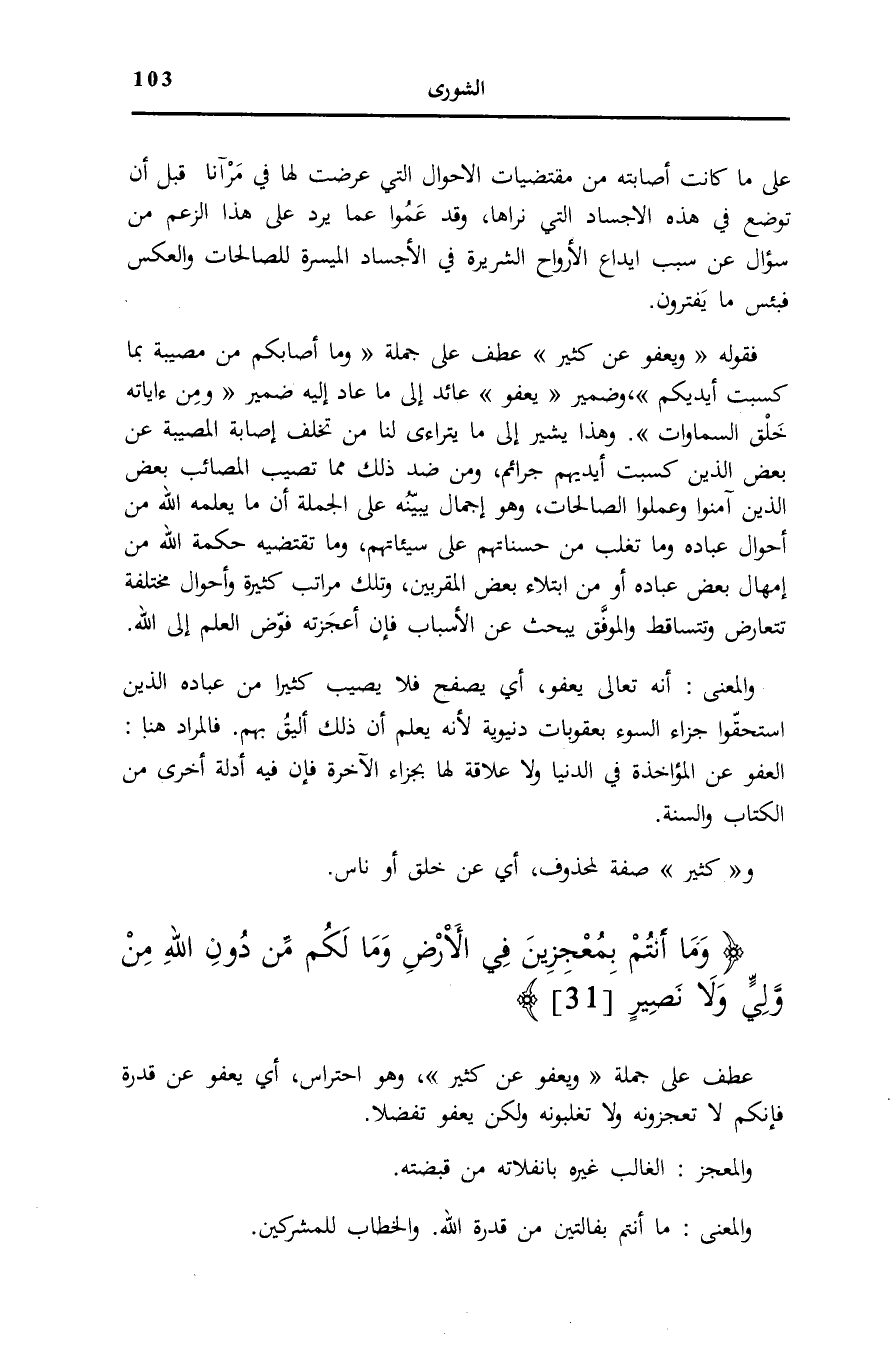 103
الشورى
على ما كانت أصابته من مقتضيات الاحوال التي عرضت لها في مَرْآنا قبل أن
توضع في هذه الاجساد التي نراها، وقد عَمُوا عما يرد على هذا الزعم من
سؤال عن سبب ايداع الأرواح الشريرة في الأجساد الميسرة للصالحات والعكس
فبئس ما يَفترون.
فقوله « ويعفو عن كثير » عطف على جملة « وما أصابكم من مصيبة بما
كسبت أيديكم »،وضمير « يعفو » عائد إلى ما عاد إليه ضمير « ومِن ءاياته
خَلْق السماوات ». وهذا يشير إلى ما يتراءى لنا من تخلف إصابة المصيبة عن
بعض الذين كسبت أيديهم جرائم، ومن ضد ذلك مما تصيب المصائب بعض
الذين آمنوا وعملوا الصالحات، وهو إجمال يبيّنُه على الجملة أن ما يعلمه الله من
أحوال عباده وما تغلب من حسناتهم على سيئاتهم، وما تقتضيه حكمة الله من
إمهال بعض عباده أو من ابتلاء بعض المقربين، وتلك مراتب كثيرة وأحوال مختلفة
تتعارض وتتساقط والموفَّق يبحث عن الأسباب فإن أعجَزته فوّض العلم إلى الله.
والمعنى : أنه تعالى يعفو، أي يصفح فلا يصيب كثيرا من عباده الذين
استحقّوا جزاء السوء بعقوبات دنيوية لأنه يعلم أن ذلك أليقُ بهم. فالمراد هنا :
العفو عن المؤاخذة في الدنيا ولا علاقة لها بجزاء الآخرة فإن فيه أدلة أخرى من
الكتاب والسنة.
و« كثير » صفة لمحذوف، أي عن خلق أو ناس.
﴿ وَمَا أَنتُمْ بِمُعْجِزِينَ فِي الْأَرْضِ وَمَا لَكُم مِّن دُونِ اللهِ مِنْ
وَّلِيٍّ وَلَا نَصِيرٍ [31] ﴾
عطف على جملة « ويعفو عن كثير »، وهو احتراس، أي يعفو عن قدرة
فإنكم لا تعجزونه ولا تغلبونه ولكن يعفو تفضلا.
والمعجز : الغالب غيره بانفلاته من قبضته.
والمعنى : ما أنتم بفالتين من قدرة الله. والخطاب للمشركين.